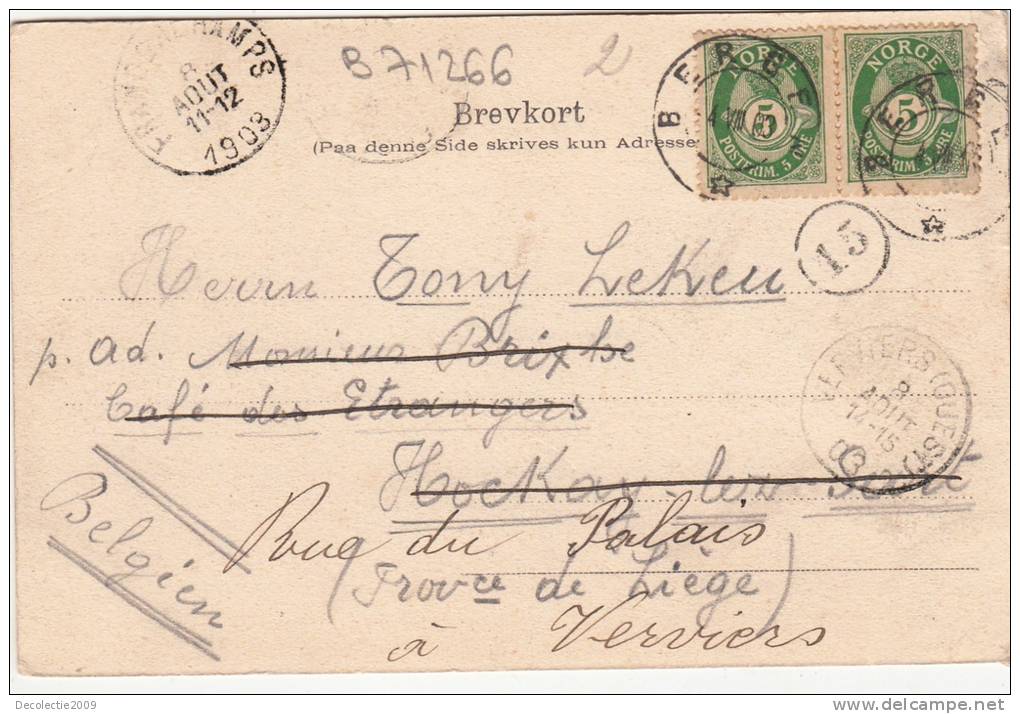 FRANCORCHAMPS
8
AOUT
11-12
1903
B 71266
2
Brevkort
(Paa denne Side skrives kun Adresse
BERGEN
NORGE
5
POSTFRIM. 5 ØRE
NORGE
5
POSTFRIM. 5 ØRE
BERGEN
15
Herrn Tony Lekeu
p. ad. Monsieur Brixhe
Café des Etrangers
VERVIERS (OUEST
8
AOUT
14-15
03
Hockay-lez-
Belgien
Rue du Palais
(Provce de Liège)
à Verviers
Decolectie2009
www.delcampe.net